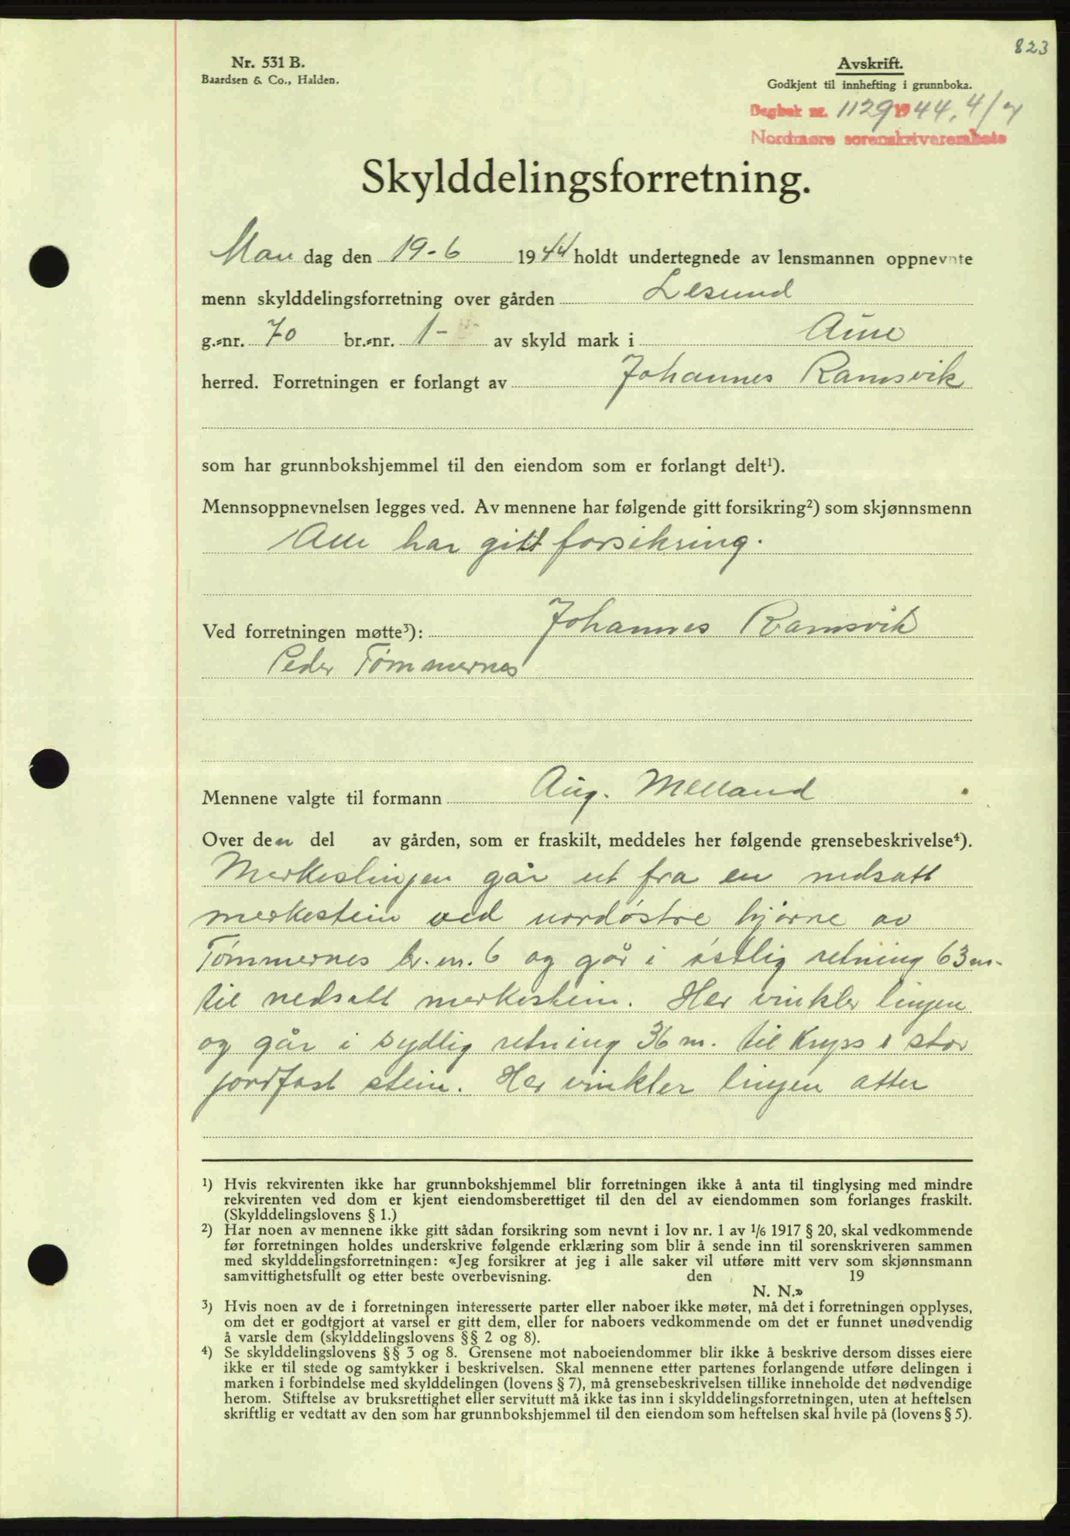 823
Nr. 531 B.
Baardsen & Co., Halden.
Avskrift.
Godkjent til innhefting i grunnboka.
Dagbok nr. 1129 1944, 4/7
Nordmøre sorenskriverembete
Skylddelingsforretning.
Mandag den 19-6 1944 holdt undertegnede av lensmannen oppnevnte
menn skylddelingsforretning over gården Lesund
g.-nr. 70 br.-nr. 1- av skyld mark i Aure
herred. Forretningen er forlangt av Johannes Ramsvik
som har grunnbokshjemmel til den eiendom som er forlangt delt¹).
Mennsoppnevnelsen legges ved. Av mennene har følgende gitt forsikring²) som skjønnsmenn
Alle har gitt forsikring.
Ved forretningen møtte³): Johannes Ramsvik
Peder Tømmernes
Mennene valgte til formann Aug. Melland
Over den del av gården, som er fraskilt, meddeles her følgende grensebeskrivelse⁴).
Merkeslinjen går ut fra en nedsatt
merkestein ved nordøstre hjørne av
Tømmernes br. nr. 6 og går i østlig retning 63 m.
til nedsatt merkestein. Her vinkler linjen
og går i sydlig retning 36 m. til kryss i stor
jordfast stein. Her vinkler linjen atter
¹) Hvis rekvirenten ikke har grunnbokshjemmel blir forretningen ikke å anta til tinglysing med mindre
rekvirenten ved dom er kjent eiendomsberettiget til den del av eiendommen som forlanges fraskilt.
(Skylddelingslovens § 1.)
²) Har noen av mennene ikke gitt sådan forsikring som nevnt i lov nr. 1 av 1/6 1917 § 20, skal vedkommende
før forretningen holdes underskrive følgende erklæring som blir å sende inn til sorenskriveren sammen
med skylddelingsforretningen: «Jeg forsikrer at jeg i alle saker vil utføre mitt verv som skjønnsmann
samvittighetsfullt og etter beste overbevisning. den 19
N. N.»
³) Hvis noen av de i forretningen interesserte parter eller naboer ikke møter, må det i forretningen opplyses,
om det er godtgjort at varsel er gitt dem, eller for naboers vedkommende om det er funnet unødvendig
å varsle dem (skylddelingslovens §§ 2 og 8).
⁴) Se skylddelingslovens §§ 3 og 8. Grensene mot naboeiendommer blir ikke å beskrive dersom disses eiere
ikke er til stede og samtykker i beskrivelsen. Skal mennene etter partenes forlangende utføre delingen i
marken i forbindelse med skylddelingen (lovens § 7), må grensebeskrivelsen tillike inneholde det nødvendige
herom. Stiftelse av bruksrettighet eller servitutt må ikke tas inn i skylddelingsforretningen, uten at heftelsen
skriftlig er vedtatt av den som har grunnbokshjemmel til den eiendom som heftelsen skal hvile på (lovens § 5).